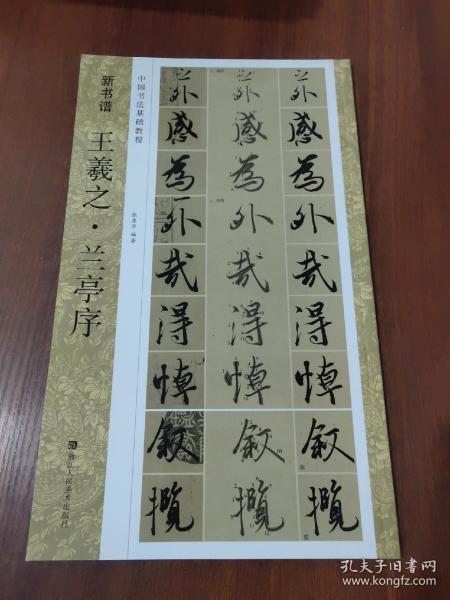 新书谱
王羲之·兰亭序
浙江人民美术出版社
中国书法基础教程
之 之 之
外 外 外
感 感 感
为 为 为
外 外 外
哉 哉 哉
得 得 得
悼 悼 悼
叙 叙 叙
揽 揽 揽
孔夫子旧书网
www.kongfz.com